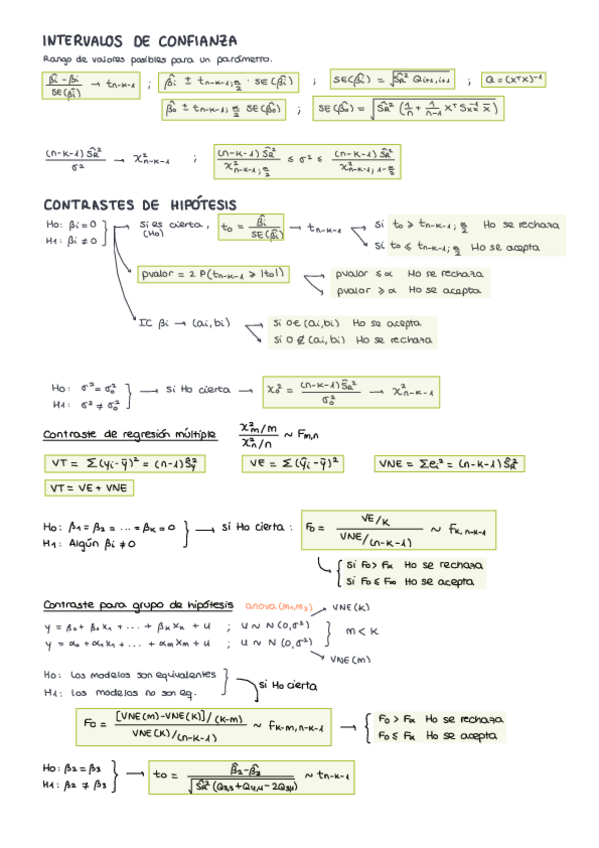 INTERVALOS DE CONFIANZA
Rango de valores posibles para un parámetro.
(β̂i - βi) / SE(β̂i) → tn-k-1 ; β̂i ± tn-k-1; α/2 · SE(β̂i) ; SE(β̂i) = √(ŜR² Qi+1,i+1) ; Q = (XᵀX)⁻¹
β̂0 ± tn-k-1; α/2 SE(β̂0) ; SE(β̂0) = √(ŜR² (1/n + 1/(n-1) x̄ᵀ Sxx⁻¹ x̄))
(n-k-1) ŜR² / σ² → χ²n-k-1 ; (n-k-1) ŜR² / χ²n-k-1; α/2 ≤ σ² ≤ (n-k-1) ŜR² / χ²n-k-1; 1-α/2
CONTRASTES DE HIPÓTESIS
H0: βi = 0
H1: βi ≠ 0
Si es cierta, (H0) t0 = β̂i / SE(β̂i) → tn-k-1
Si t0 ≥ tn-k-1; α/2 H0 se rechaza
Si t0 ≤ tn-k-1; α/2 H0 se acepta
pvalor = 2 P(tn-k-1 ≥ |t0|)
pvalor ≤ α H0 se rechaza
pvalor ≥ α H0 se acepta
IC βi → (ai, bi)
Si 0 ∈ (ai, bi) H0 se acepta
Si 0 ∉ (ai, bi) H0 se rechaza
H0: σ² = σ0²
H1: σ² ≠ σ0²
→ Si H0 cierta → χ0² = (n-k-1) ŜR² / σ0² → χ²n-k-1
Contraste de regresión múltiple (χ²m/m) / (χ²n/n) ~ Fm,n
VT = Σ(yi - ȳ)² = (n-1) Ŝy² VE = Σ(ŷi - ȳ)² VNE = Σei² = (n-k-1) ŜR²
VT = VE + VNE
H0: β1 = β2 = ... = βk = 0
H1: Algún βi ≠ 0
→ Si H0 cierta : F0 = (VE/k) / (VNE/(n-k-1)) ~ fk, n-k-1
Si F0 > Fα H0 se rechaza
Si F0 ≤ Fα H0 se acepta
Contraste para grupo de hipótesis anova(m1,m2) VNE(k)
y = β0 + β1x1 + ... + βkxk + u ; u ~ N(0, σ²)
y = α0 + α1x1 + ... + αmxm + u ; u ~ N(0, σ²)
m < k
VNE(m)
H0: Los modelos son equivalentes
H1: Los modelos no son eq.
Si H0 cierta
F0 = ([VNE(m) - VNE(k)] / (k-m)) / (VNE(k) / (n-k-1)) ~ fk-m, n-k-1
F0 > Fα H0 se rechaza
F0 ≤ Fα H0 se acepta
H0: β2 = β3
H1: β2 ≠ β3
→ t0 = (β̂2 - β̂3) / √(ŜR² (Q3,3 + Q4,4 - 2Q3,4)) ~ tn-k-1